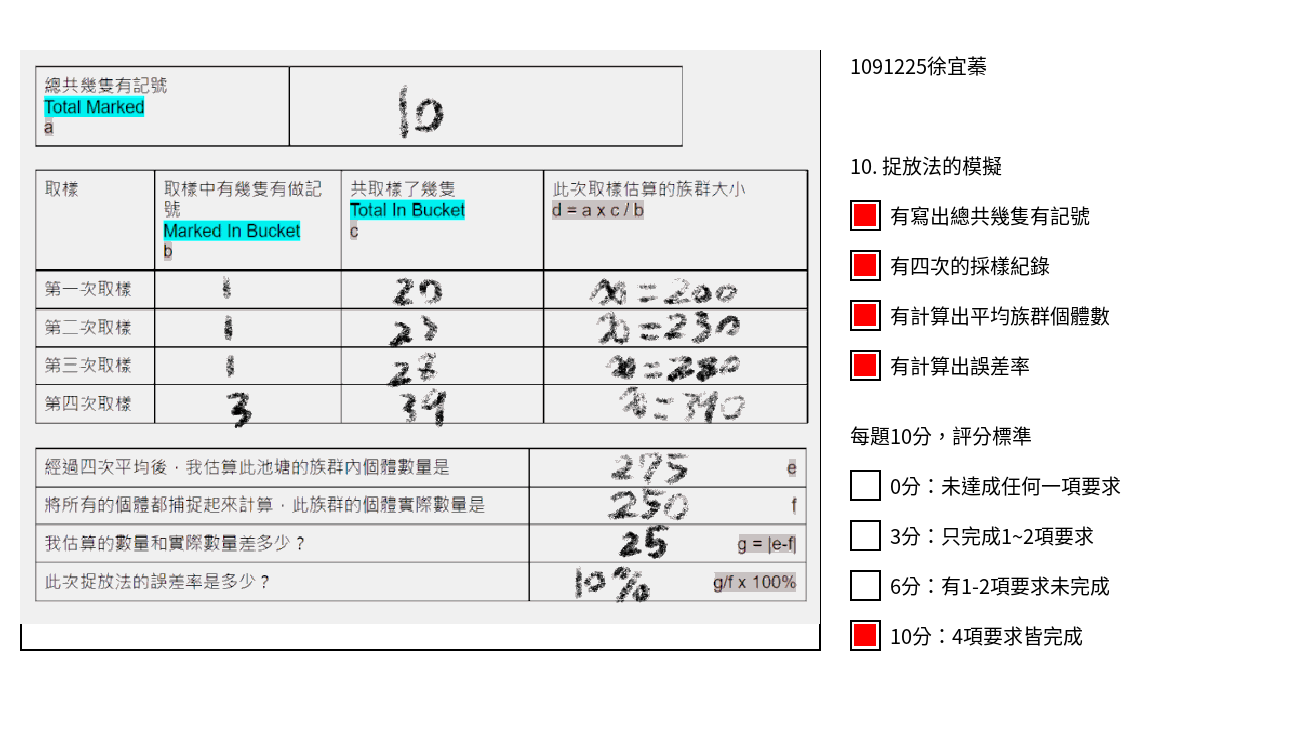 總共幾隻有記號
Total Marked
a
10
取樣
取樣中有幾隻有做記
號
Marked In Bucket
b
共取樣了幾隻
Total In Bucket
c
此次取樣估算的族群大小
d = a x c / b
第一次取樣
1
20
x=200
第二次取樣
1
23
x=230
第三次取樣
1
28
x=280
第四次取樣
3
39
x=390
經過四次平均後，我估算此池塘的族群內個體數量是
275
e
將所有的個體都捕捉起來計算，此族群的個體實際數量是
250
f
我估算的數量和實際數量差多少？
25
g = |e-f|
此次捉放法的誤差率是多少？
10%
g/f x 100%
1091225徐宜蓁
10. 捉放法的模擬
有寫出總共幾隻有記號
有四次的採樣紀錄
有計算出平均族群個體數
有計算出誤差率
每題10分，評分標準
0分：未達成任何一項要求
3分：只完成1~2項要求
6分：有1-2項要求未完成
10分：4項要求皆完成